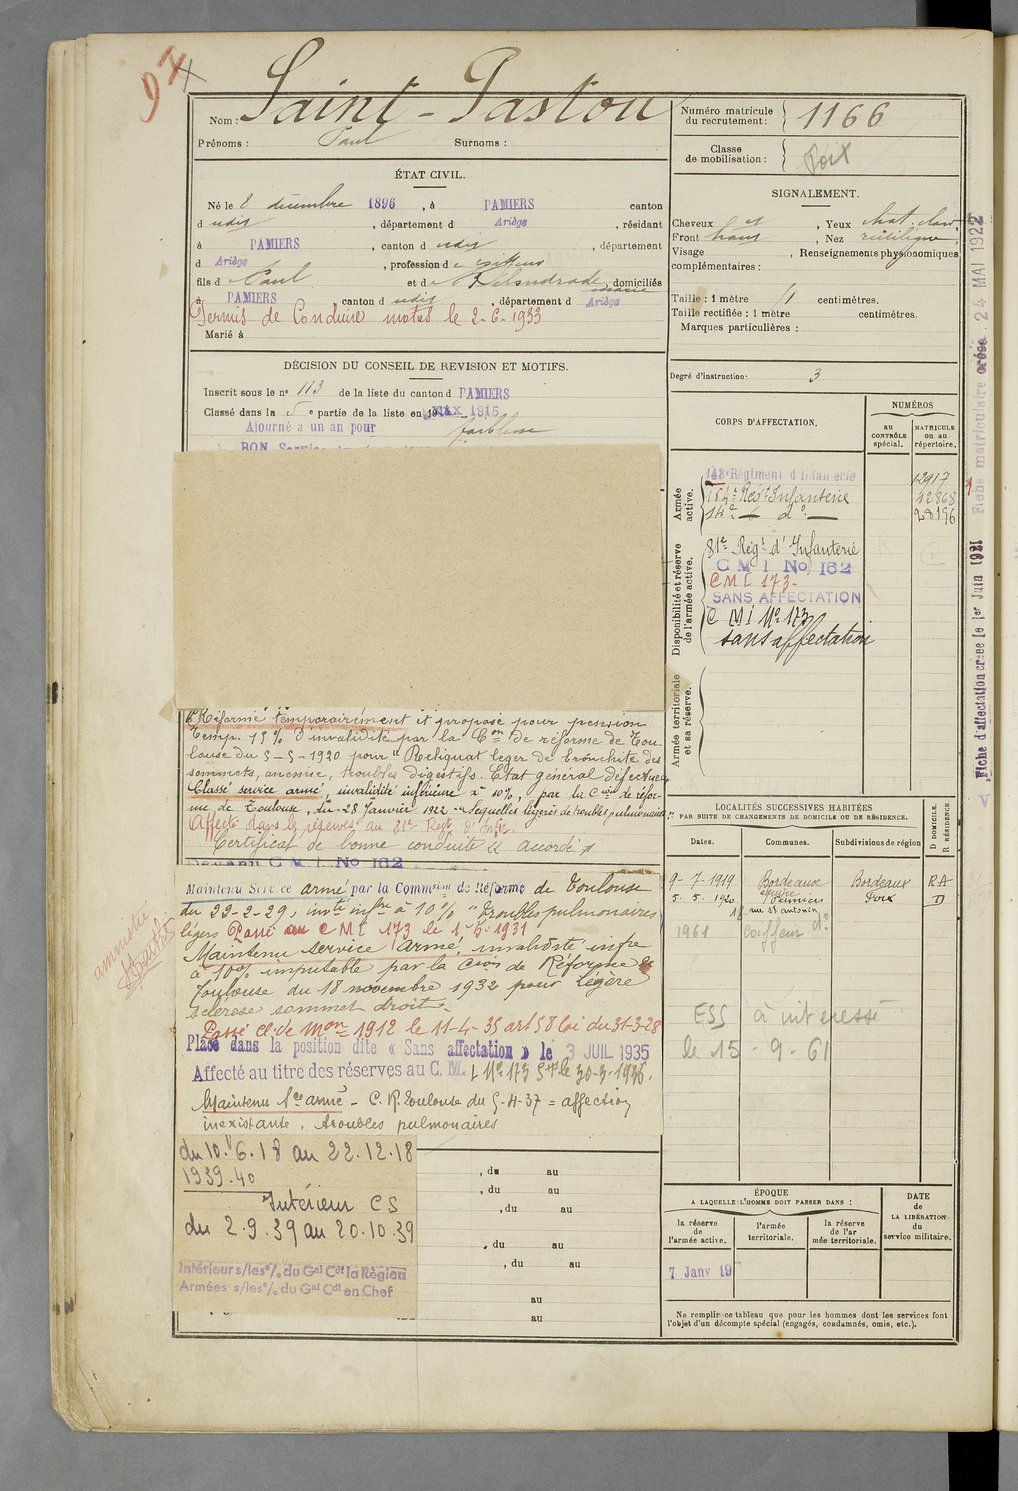 97
Nom : Saint-Gaston
Prénoms : Paul Surnoms :
Numéro matricule du recrutement : 1166
Classe de mobilisation : Foix
ÉTAT CIVIL.
Né le 8 décembre 1896, à PAMIERS canton
d udis, département d Ariège, résidant
à PAMIERS, canton d udis, département
d Ariège, profession d
fils d Paul et d , domiciliés
à PAMIERS canton d udis, département d Ariège
Permis de Conduire motos le 2-6-1933
Marié à
SIGNALEMENT.
Cheveux , Yeux chat. clair
Front haut, Nez rectiligne
Visage , Renseignements physionomiques
complémentaires :
Taille : 1 mètre 71 centimètres.
Taille rectifiée : 1 mètre centimètres.
Marques particulières :
Degré d'instruction : 3
DÉCISION DU CONSEIL DE REVISION ET MOTIFS.
Inscrit sous le n° 113 de la liste du canton d PAMIERS
Classé dans la 5e partie de la liste en 1915
Ajourné a un an pour faiblesse
BON Service
CORPS D'AFFECTATION.
NUMÉROS
au CONTRÔLE spécial.
MATRICULE ou au répertoire.
Armée active.
143e Régiment d'Infanterie 12917
Regt Infanterie 12868
14e — do — 28196
Disponibilité et réserve de l'armée active.
81e Régt d'Infanterie
C M I No 162
CMI 173-
SANS AFFECTATION
C M I No 173
sans affectation
Armée territoriale et sa réserve.
Fiche d'affectation créée le 1er Juin 1921
Fiche matriculaire créée 24 MAI 1922
Réformé temporairement et proposé pour pension
temp. 15% d'invalidité par la Con de réforme de Tou-
louse du 5-5-1920 pour "Reliquat léger de bronchite des
sommets, anémie, troubles digestifs. Etat général défectueux
Classé service armé, invalidité inférieure à 10%, par la Con de réfor-
me de Toulouse, du 28 Janvier 1922 "Séquelles légères de troubles pulmonaires"
Affecté dans les réserves au 81e Regt d'Infie.
Certificat de bonne conduite "Accordé"
C M I No 162
Maintenu Service armé par la Commsion de Réforme de Toulouse
du 22-2-29, invté infre à 10% "troubles pulmonaires
légers Passé au CMI 173 le 1-5-1931
Maintenu service armé invalidité infre
à 10% imputable par la Con de Réforme de
Toulouse du 18 novembre 1932 pour légère
sclérose sommet droit.
Passé cl. de Mon 1912 le 11-4-35 art 58 loi du 31-3-28
Placé dans la position dite « Sans affectation » le 3 JUIL 1935
Affecté au titre des réserves au C. M. I No 173 le 30-3-1936.
Maintenu Sce armé - C.R. Toulouse du 5-4-37 = affection
inexistante, troubles pulmonaires
amnistié
du 10.6.18 au 22.12.18
1939-40
Intérieur CS
du 2.9.39 au 20.10.39
Intérieur s/les o/. du Gal Cdt la Région
Armées s/les o/. du Gal Cdt en Chef
, du au
, du au
, du au
, du au
, du au
au
au
LOCALITÉS SUCCESSIVES HABITÉES
PAR SUITE DE CHANGEMENTS DE DOMICILE OU DE RÉSIDENCE.
Dates. Communes. Subdivisions de région D DOMICILE. R RÉSIDENCE
9-7-1919 Bordeaux Bordeaux R A
5.5.1920 Pamiers Foix D
rue St antonin
1961 Coiffeur do
ESS à intéressé
le 15-9-61
ÉPOQUE
A LAQUELLE L'HOMME DOIT PASSER DANS :
la réserve de l'armée active.
l'armée territoriale.
la réserve de l'armée territoriale.
DATE de LA LIBÉRATION du service militaire.
7 Janv 19
Ne remplir ce tableau que pour les hommes dont les services font
l'objet d'un décompte spécial (engagés, condamnés, omis, etc.).